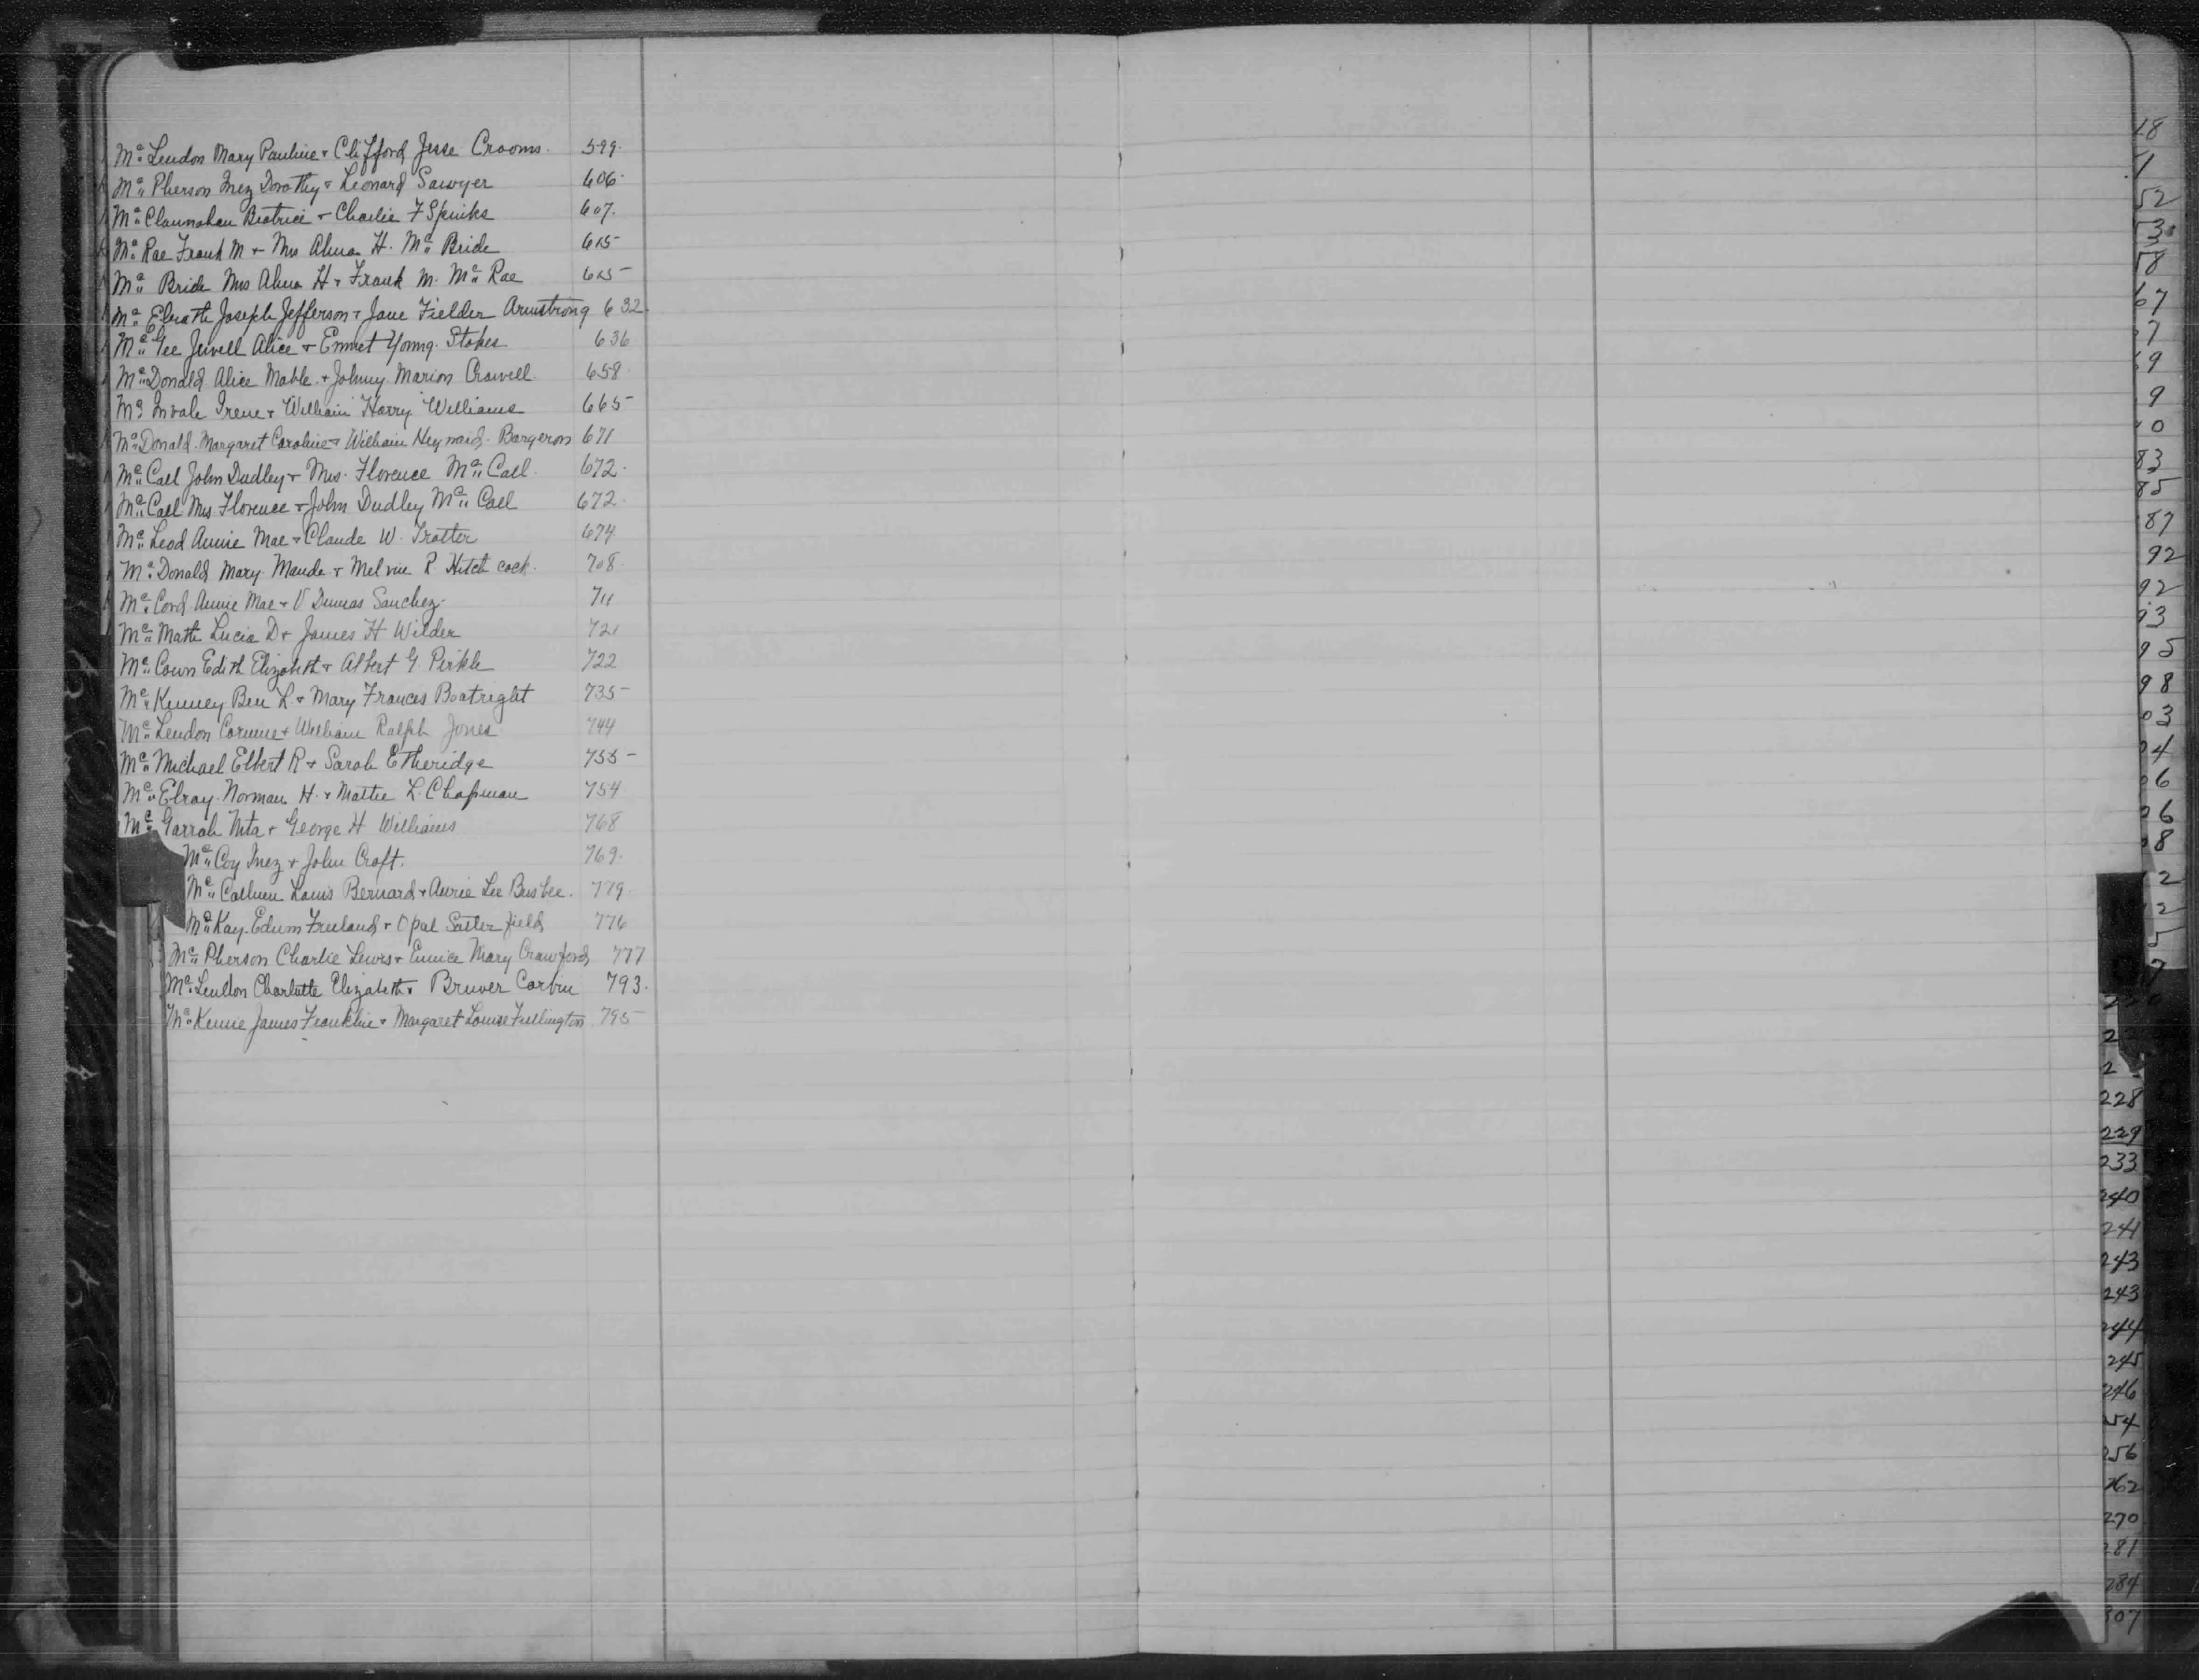 Mc Lendon Mary Pauline + Clifford Jesse Crooms. 599.
Mc Pherson Inez Dorothy + Leonard Sawyer 606.
Mc Clannahan Beatrice + Charlie F Spinks 607.
Mc Rae Frank M + Mrs Alma H. Mc Bride 615
Mc Bride Mrs Alma H + Frank M. Mc Rae 615
Mc Elrath Joseph Jefferson + Jane Fielder Armstrong 632.
Mc Gee Jewell Alice + Emmet Young Stokes 636
Mc Donald Alice Mable + Johnny Marion Crowell 658
Mc Irene + William Harry Williams 665
Mc Donald Margaret Caroline + William Heyward Bargeron 671
Mc Call John Dudley + Mrs. Florence Mc Call. 672.
Mc Call Mrs Florence + John Dudley Mc Call 672
Mc Leod Annie Mae + Claude W. Trotter 674
Mc Donald Mary Maude + Melvin R. Hitch cock. 708
Mc Cord Annie Mae + V Dumas Sanchez. 711
Mc Math Lucia D + James H Wilder 721
Mc Cown Edith Elizabeth + Albert G Pirkle 722
Mc Kinney Ben L. + Mary Frances Boatright 735
Mc Lendon Corinne + William Ralph Jones 744
Mc Michael Elbert R + Sarah Etheridge 755
Mc Elray Norman H. + Mattie L. Chapman 754
Mc Garrah Nita + George H Williams 768
Mc Coy Inez + John Croft. 769.
Mc Louis Bernard + Aurie Lee Busbee. 779
Mc Kay Freeland + Opal Satter field 776
Mc Pherson Charlie Lewis + Eunice Mary Crawford 777
Mc Lendon Charlotte Elizabeth + Bruver Corbin 793.
Mc Kenzie James Franklin + Margaret Louise Fullington 795
228
229
233
240
241
243
243
244
245
246